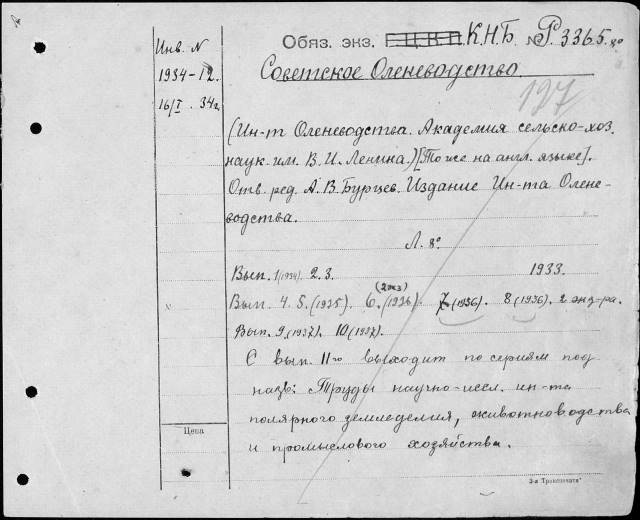 Инв. N
1934-12.
16/I. 34г.
Обяз. экз. Г.Ц.К.П. К.Н.Б. № Р.3365.80
Советское Оленеводство.
127
(Ин-т Оленеводства. Академия сельско-хоз.
наук им. В. И. Ленина.) [То же на англ. языке].
Отв. ред. А. В. Бурцев. Издание Ин-та Олене-
водства.
Л. 8°
Вып. 1(1934). 2.3. 1933.
(2экз)
Вып. 4. 5. (1935). 6. (1936). 7 (1936). 8 (1936). 2 экз-ра.
Вып. 9 (1937). 10 (1937).
С вып. 11-го выходит по сериям под
назв: Труды научно-иссл. ин-та
полярного земледелия, животноводства
и промыслового хозяйства.
Цена
3-я Транспечати